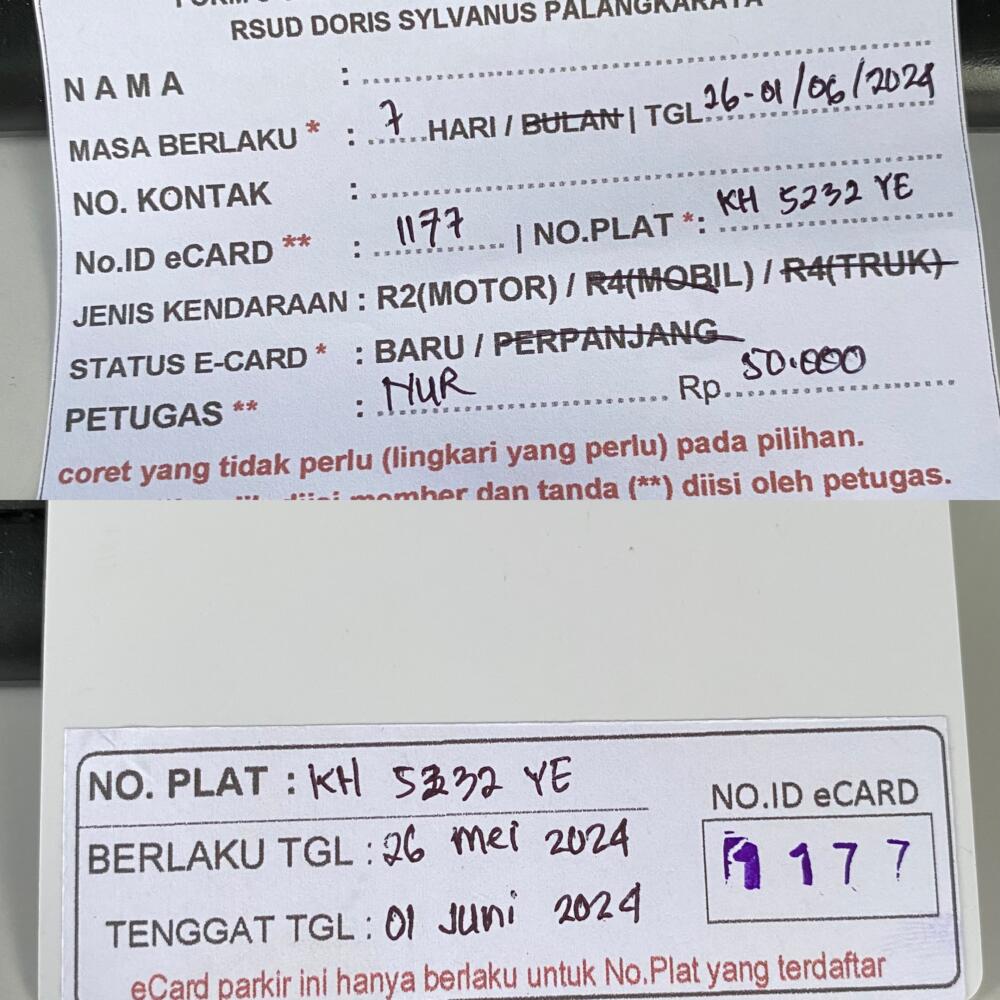 RSUD DORIS SYLVANUS PALANGKARAYA
NAMA :
MASA BERLAKU * : 7 HARI / BULAN | TGL 26-01/06/2024
NO. KONTAK :
No.ID eCARD ** : 1177 | NO.PLAT *: KH 5232 YE
JENIS KENDARAAN : R2(MOTOR) / R4(MOBIL) / R4(TRUK)
STATUS E-CARD * : BARU / PERPANJANG
PETUGAS ** : NUR Rp 50.000
coret yang tidak perlu (lingkari yang perlu) pada pilihan.
member dan tanda (**) diisi oleh petugas.
NO. PLAT : KH 5232 YE
NO.ID eCARD
1177
BERLAKU TGL : 26 Mei 2024
TENGGAT TGL : 01 Juni 2024
eCard parkir ini hanya berlaku untuk No.Plat yang terdaftar